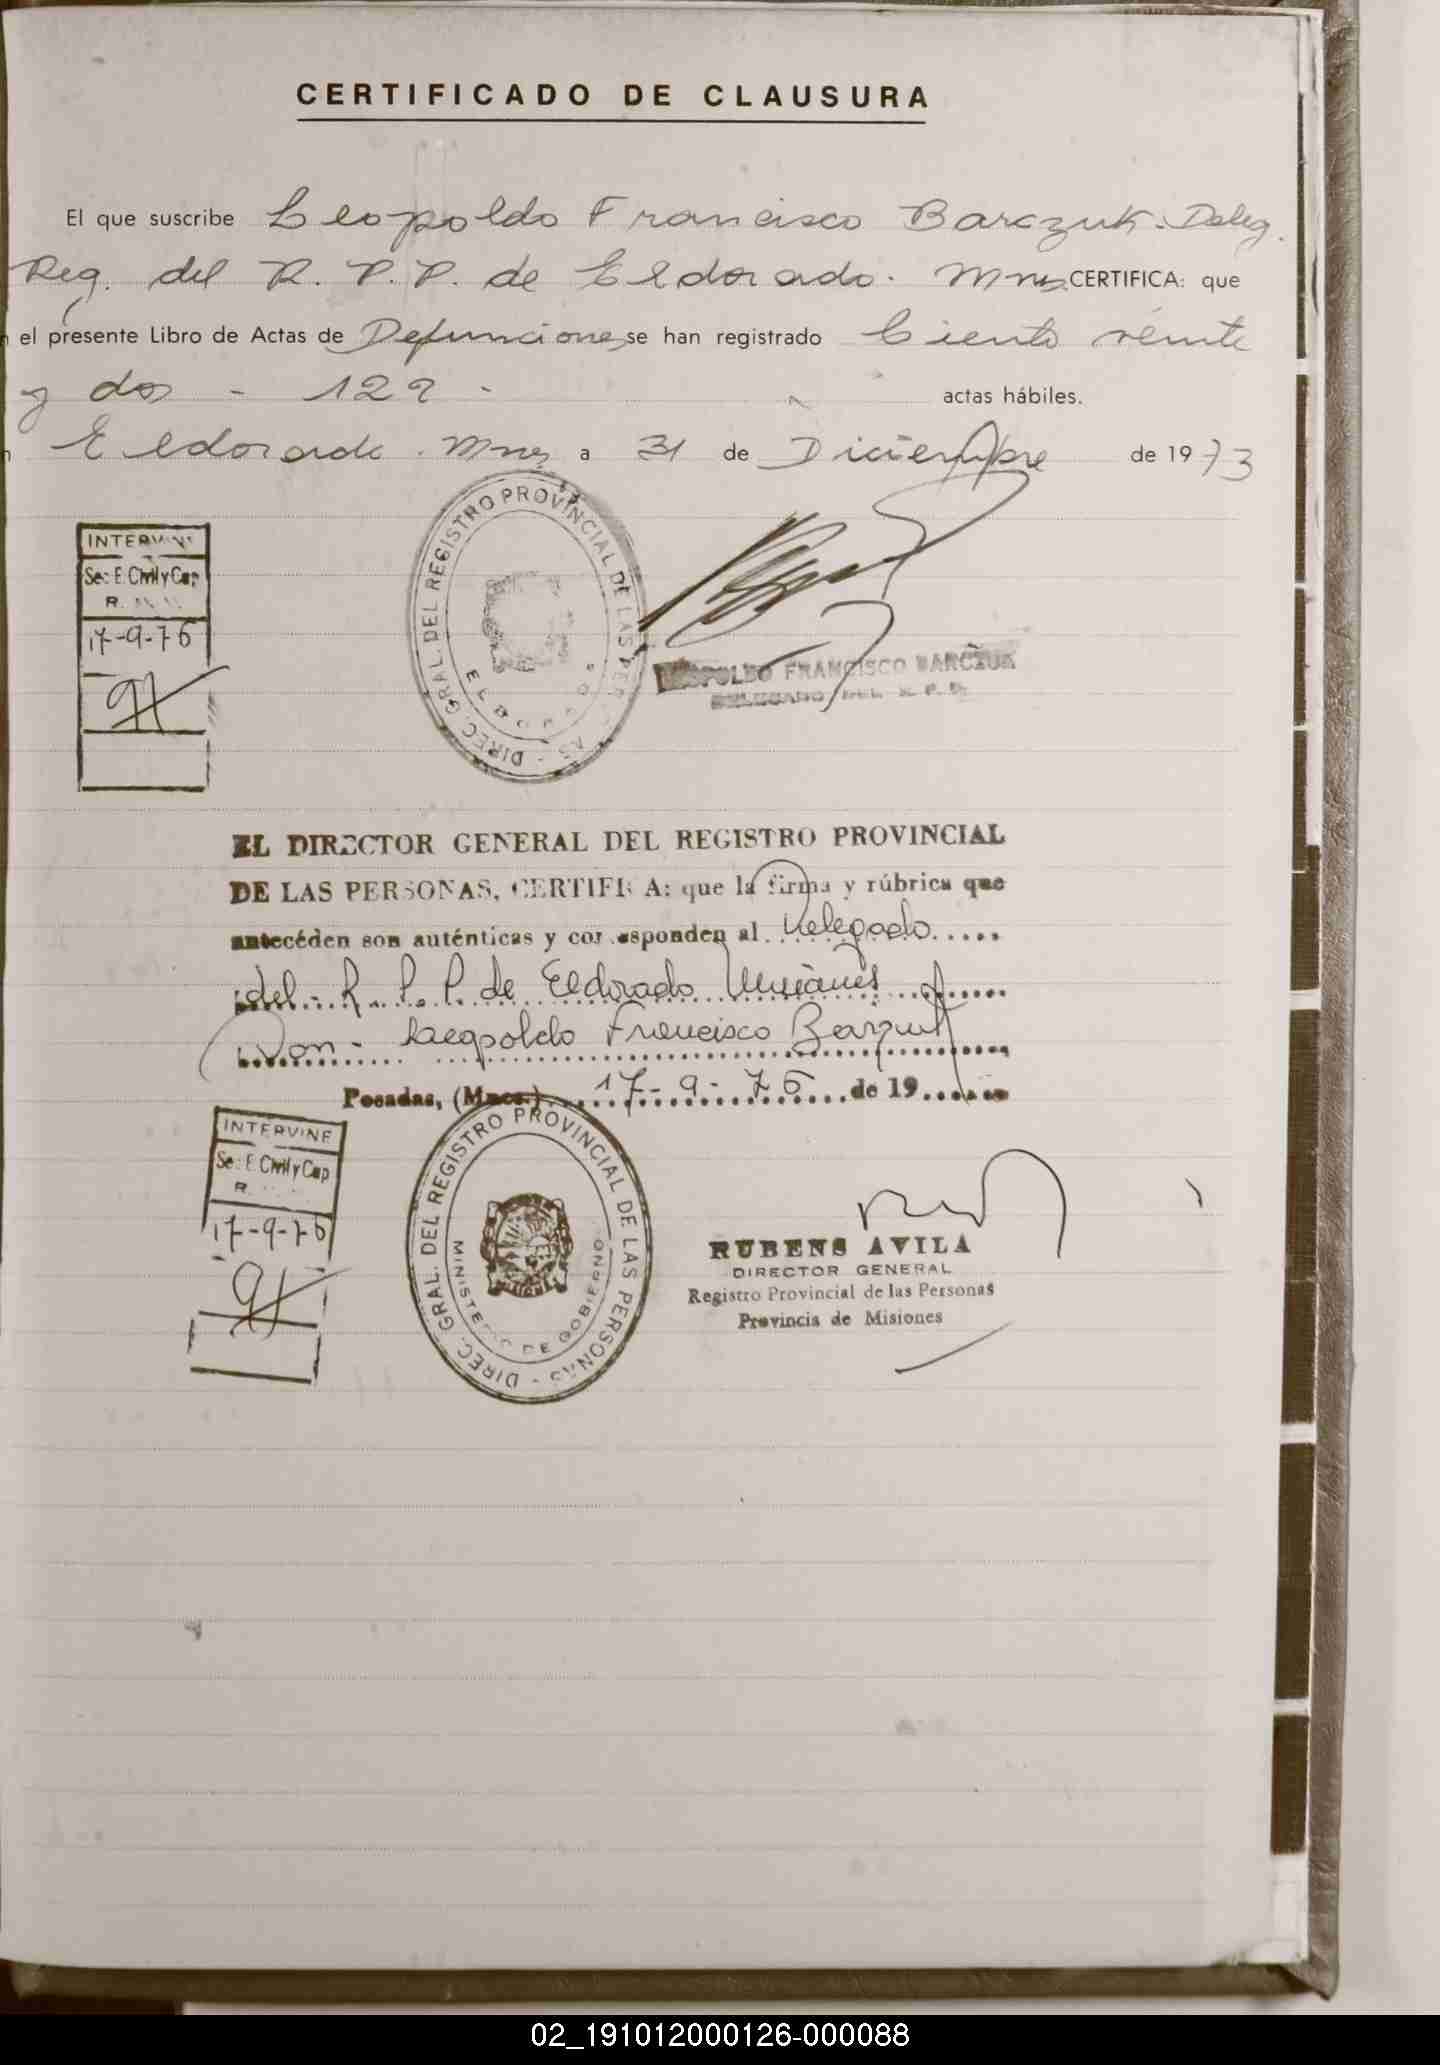 CERTIFICADO DE CLAUSURA
El que suscribe Leopoldo Francisco Barczuk. Deleg.
Reg. del R. P. P. de Eldorado. Mnes CERTIFICA: que
n el presente Libro de Actas de Defunciones se han registrado Ciento veinte
y dos - 122 - actas hábiles.
n Eldorado. Mnes a 31 de Diciembre de 1973
DIREC. GRAL. DEL REGISTRO PROVINCIAL DE LAS
INTERVINE
Sec. E. Civil y Cap
R.
17-9-76
FRANCISCO BARCZUK
DELEGADO DEL R. P. P.
EL DIRECTOR GENERAL DEL REGISTRO PROVINCIAL
DE LAS PERSONAS, CERTIFICA: que la firma y rúbrica que
antecéden son auténticas y corresponden al Delegado
del R. P. P. de Eldorado Misiones
Don - Leopoldo Francisco Barzuk
Posadas, (Mnes.) 17-9-76 de 19
INTERVINE
Sec. E. Civil y Cap
R.
17-9-76
DIREC. GRAL. DEL REGISTRO PROVINCIAL DE LAS PERSONAS
MINISTERIO DE GOBIERNO
RUBENS AVILA
DIRECTOR GENERAL
Registro Provincial de las Personas
Provincia de Misiones
02_191012000126-000088